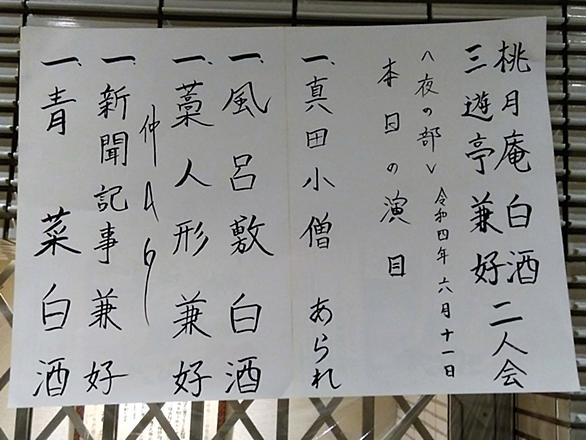 桃月庵白酒
三遊亭兼好 二人会
〈夜の部〉 令和四年六月十一日
本日の演目
一、真田小僧 あられ
一、風呂敷 白酒
一、藁人形 兼好
仲入り
一、新聞記事 兼好
一、青菜 白酒